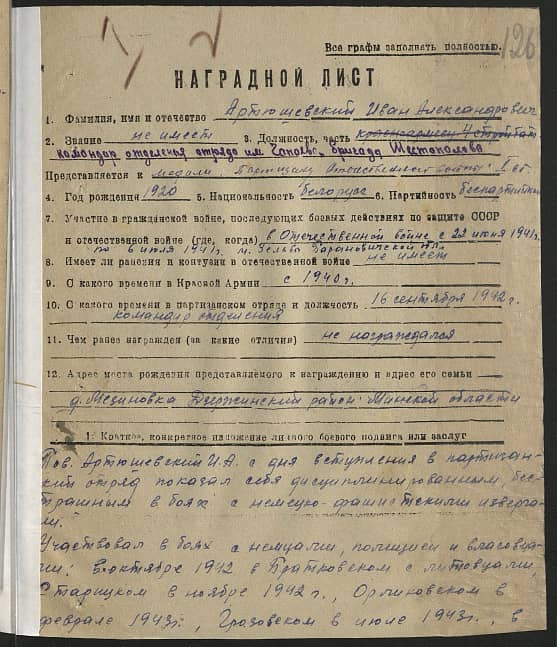 126
Все графы заполнять полностью.
НАГРАДНОЙ ЛИСТ
1. Фамилия, имя и отчество Артюшевский Иван Александрович
2. Звание не имеет 3. Должность, часть красноармеец
командир отделения отряда им. Чапаева бригада Шестопалова
Представляется к медали "Партизану Отечественной войны" II ст.
4. Год рождения 1920 5. Национальность белорус 6. Партийность беспартийный
7. Участие в гражданской войне, последующих боевых действиях по защите СССР
и отечественной войне (где, когда) в Отечественной войне с 22 июня 1941г.
по 6 июля 1941г. м. Зельва Барановичской
8. Имеет ли ранения и контузии в отечественной войне не имеет
9. С какого времени в Красной Армии с 1940г.
10. С какого времени в партизанском отряде и должность 16 сентября 1942г.
командир отделения
11. Чем ранее награжден (за какие отличия) не награждался
12. Адрес места рождения представляемого к награждению и адрес его семьи
д. Дзержинский район Минской области
1. Краткое, конкретное изложение личного боевого подвига или заслуг
Тов. Артюшевский И.А. с дня вступления в партизан-
ский отряд показал себя дисциплинированным, бес-
трашным в боях с немецко-фашистскими изверга-
ми.
Участвовал в боях с немцами, полицией и власовца-
ми: в октябре 1942 в Братковском с литовцами,
Старицком в ноябре 1942г., Орликовском в
феврале 1943г., Грозовском в июле 1943г., в